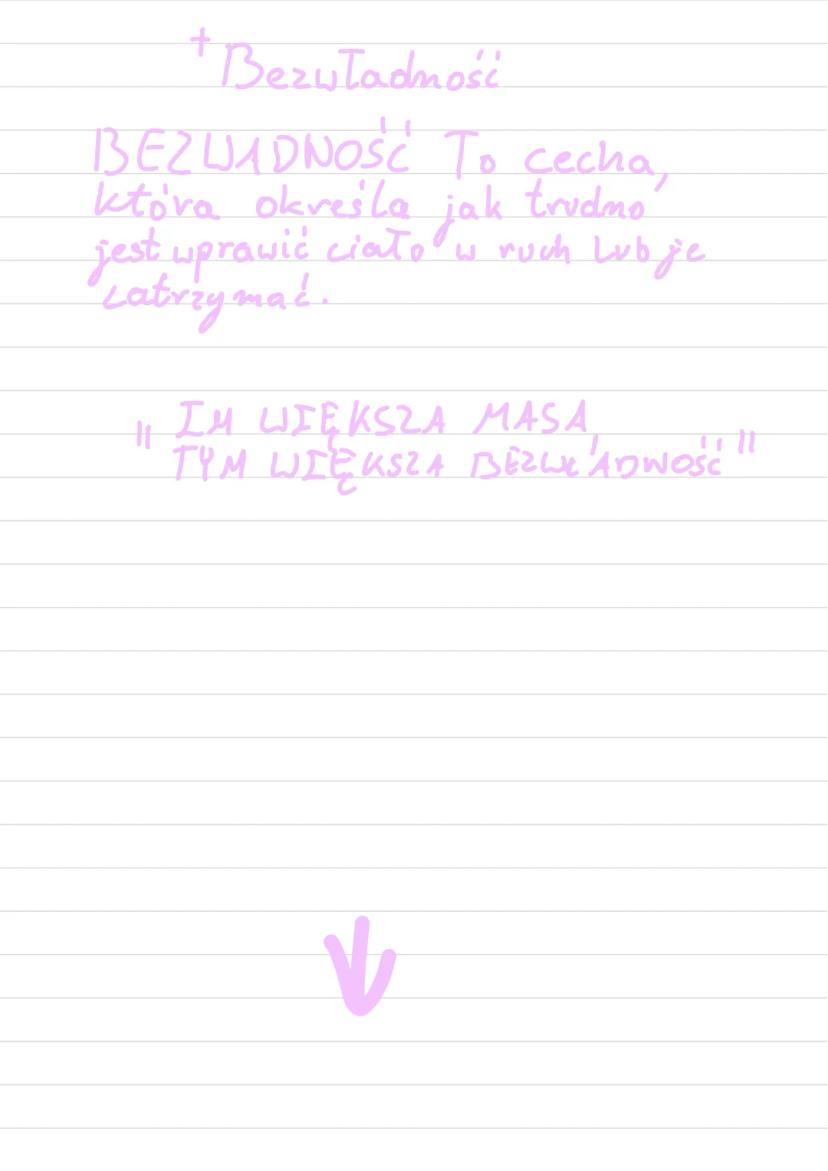 + Bezwładność
BEZWŁADNOŚĆ To cecha,
która określa jak trudno
jest wprawić ciało w ruch lub je
zatrzymać.
" IM WIĘKSZA MASA,
TYM WIĘKSZA BEZWŁADNOŚĆ "